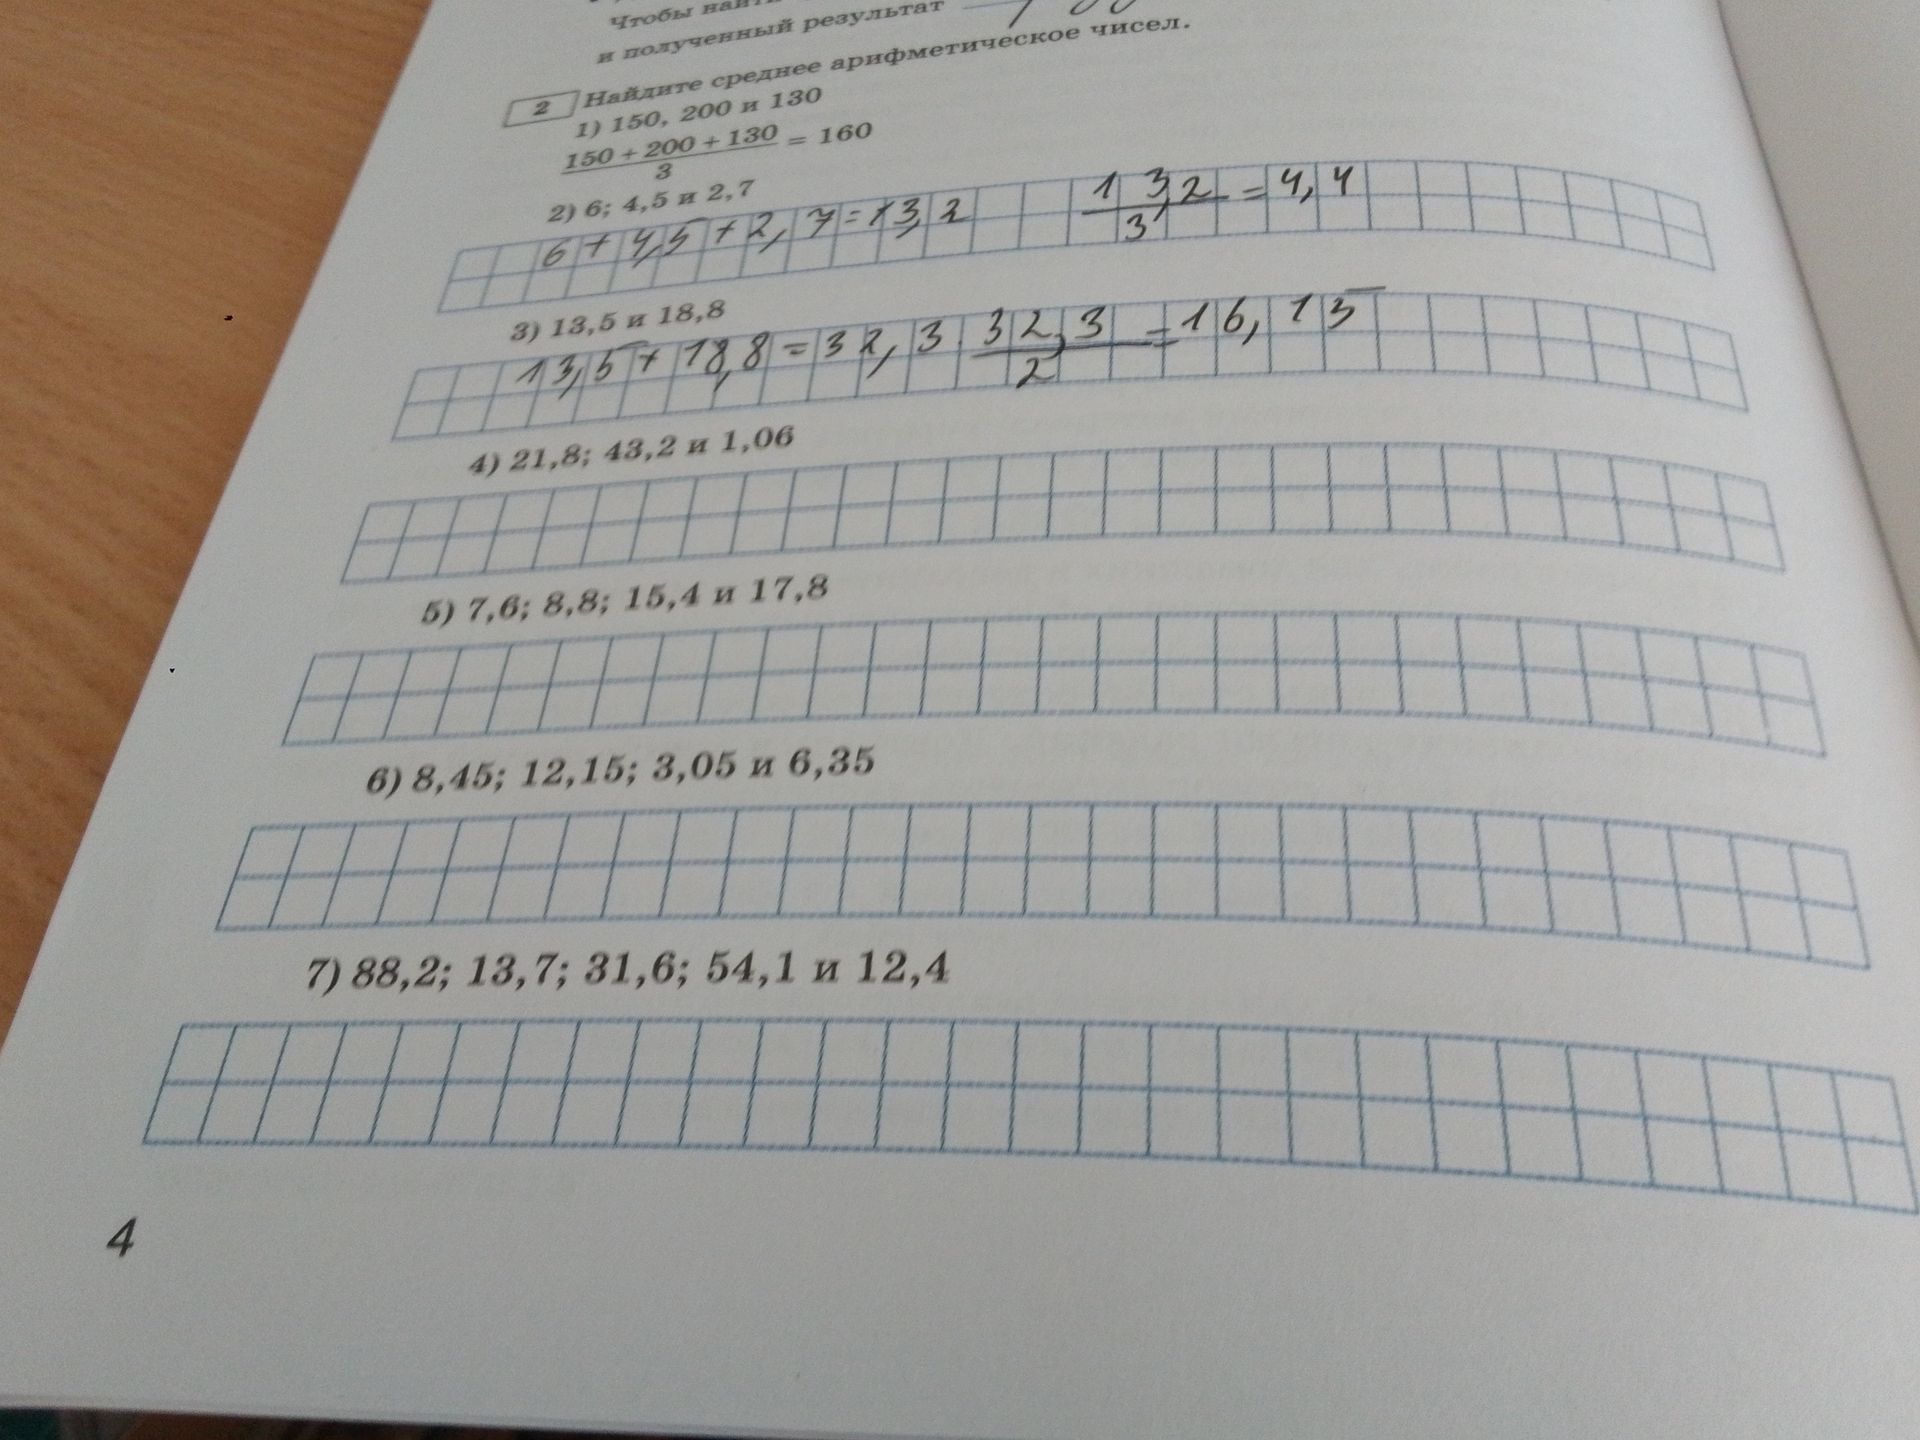 Чтобы
и полученный результат
2 Найдите среднее арифметическое чисел.
1) 150, 200 и 130
150 + 200 + 130 = 160
3
2) 6; 4,5 и 2,7
6 + 4,5 + 2,7 = 13,2 13,2 = 4,4
3
3) 13,5 и 18,8
13,5 + 18,8 = 32,3 32,3 = 16,15
2
4) 21,8; 43,2 и 1,06
5) 7,6; 8,8; 15,4 и 17,8
6) 8,45; 12,15; 3,05 и 6,35
7) 88,2; 13,7; 31,6; 54,1 и 12,4
4